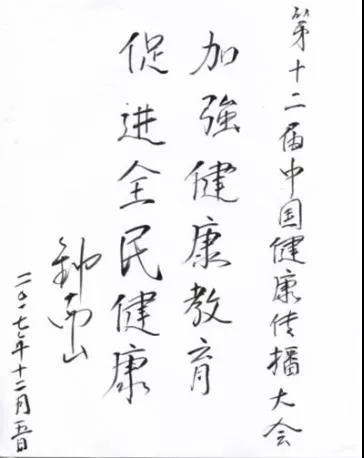 第十二届中国健康传播大会
加強健康教育
促进全民健康
钟南山
二〇一七年十二月五日